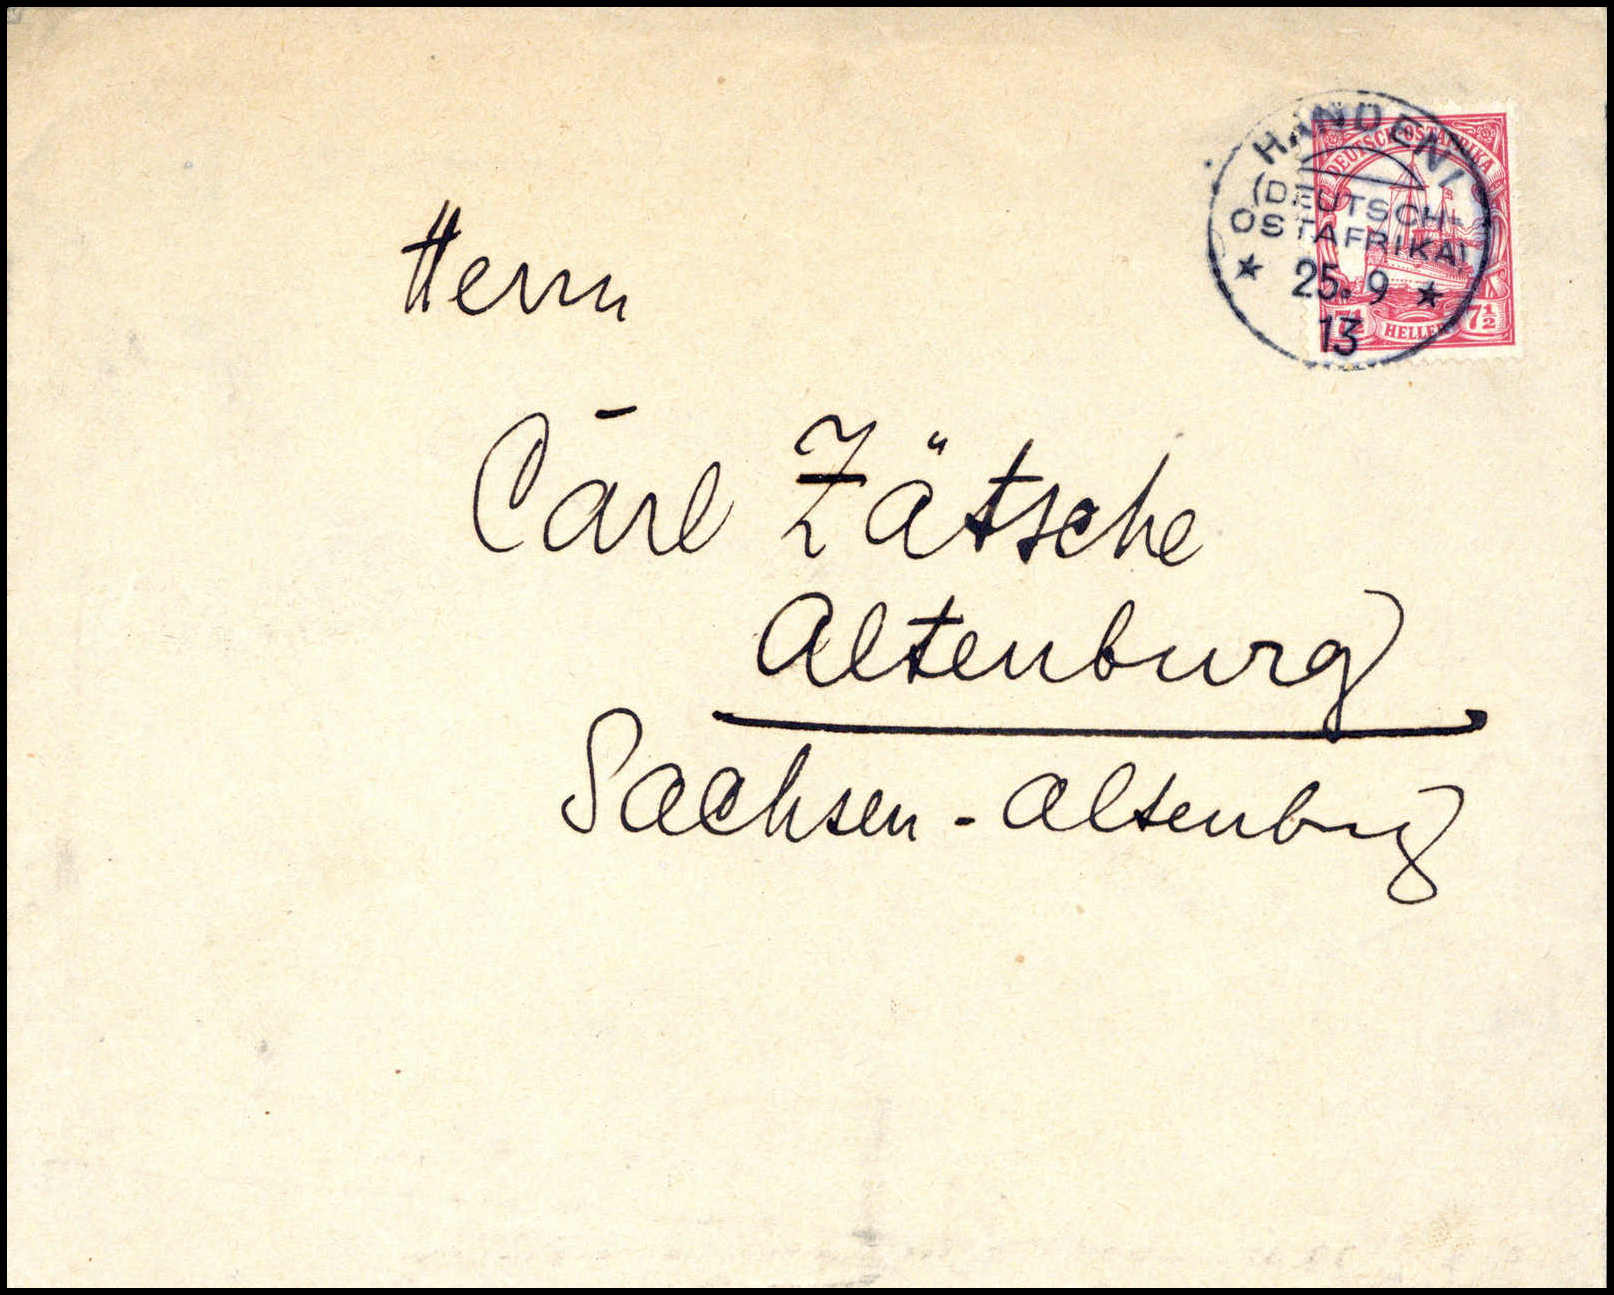 HANDENI
(DEUTSCH-
OSTAFRIKA)
★ 25. 9 ★
13
DEUTSCH-OSTAFRIKA
7½ HELLER 7½
Herrn
Carl Zätsche
Altenburg
Sachsen-Altenburg